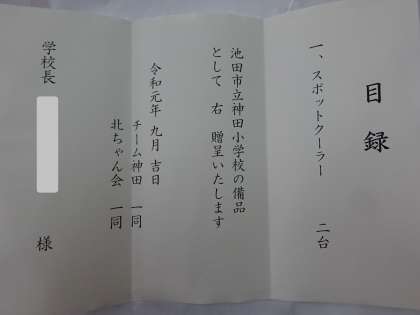 目録
一、スポットクーラー 二台
池田市立神田小学校の備品
として 右 贈呈いたします
令和元年 九月 吉日
チーム神田 一同
北ちゃん会 一同
学校長 様